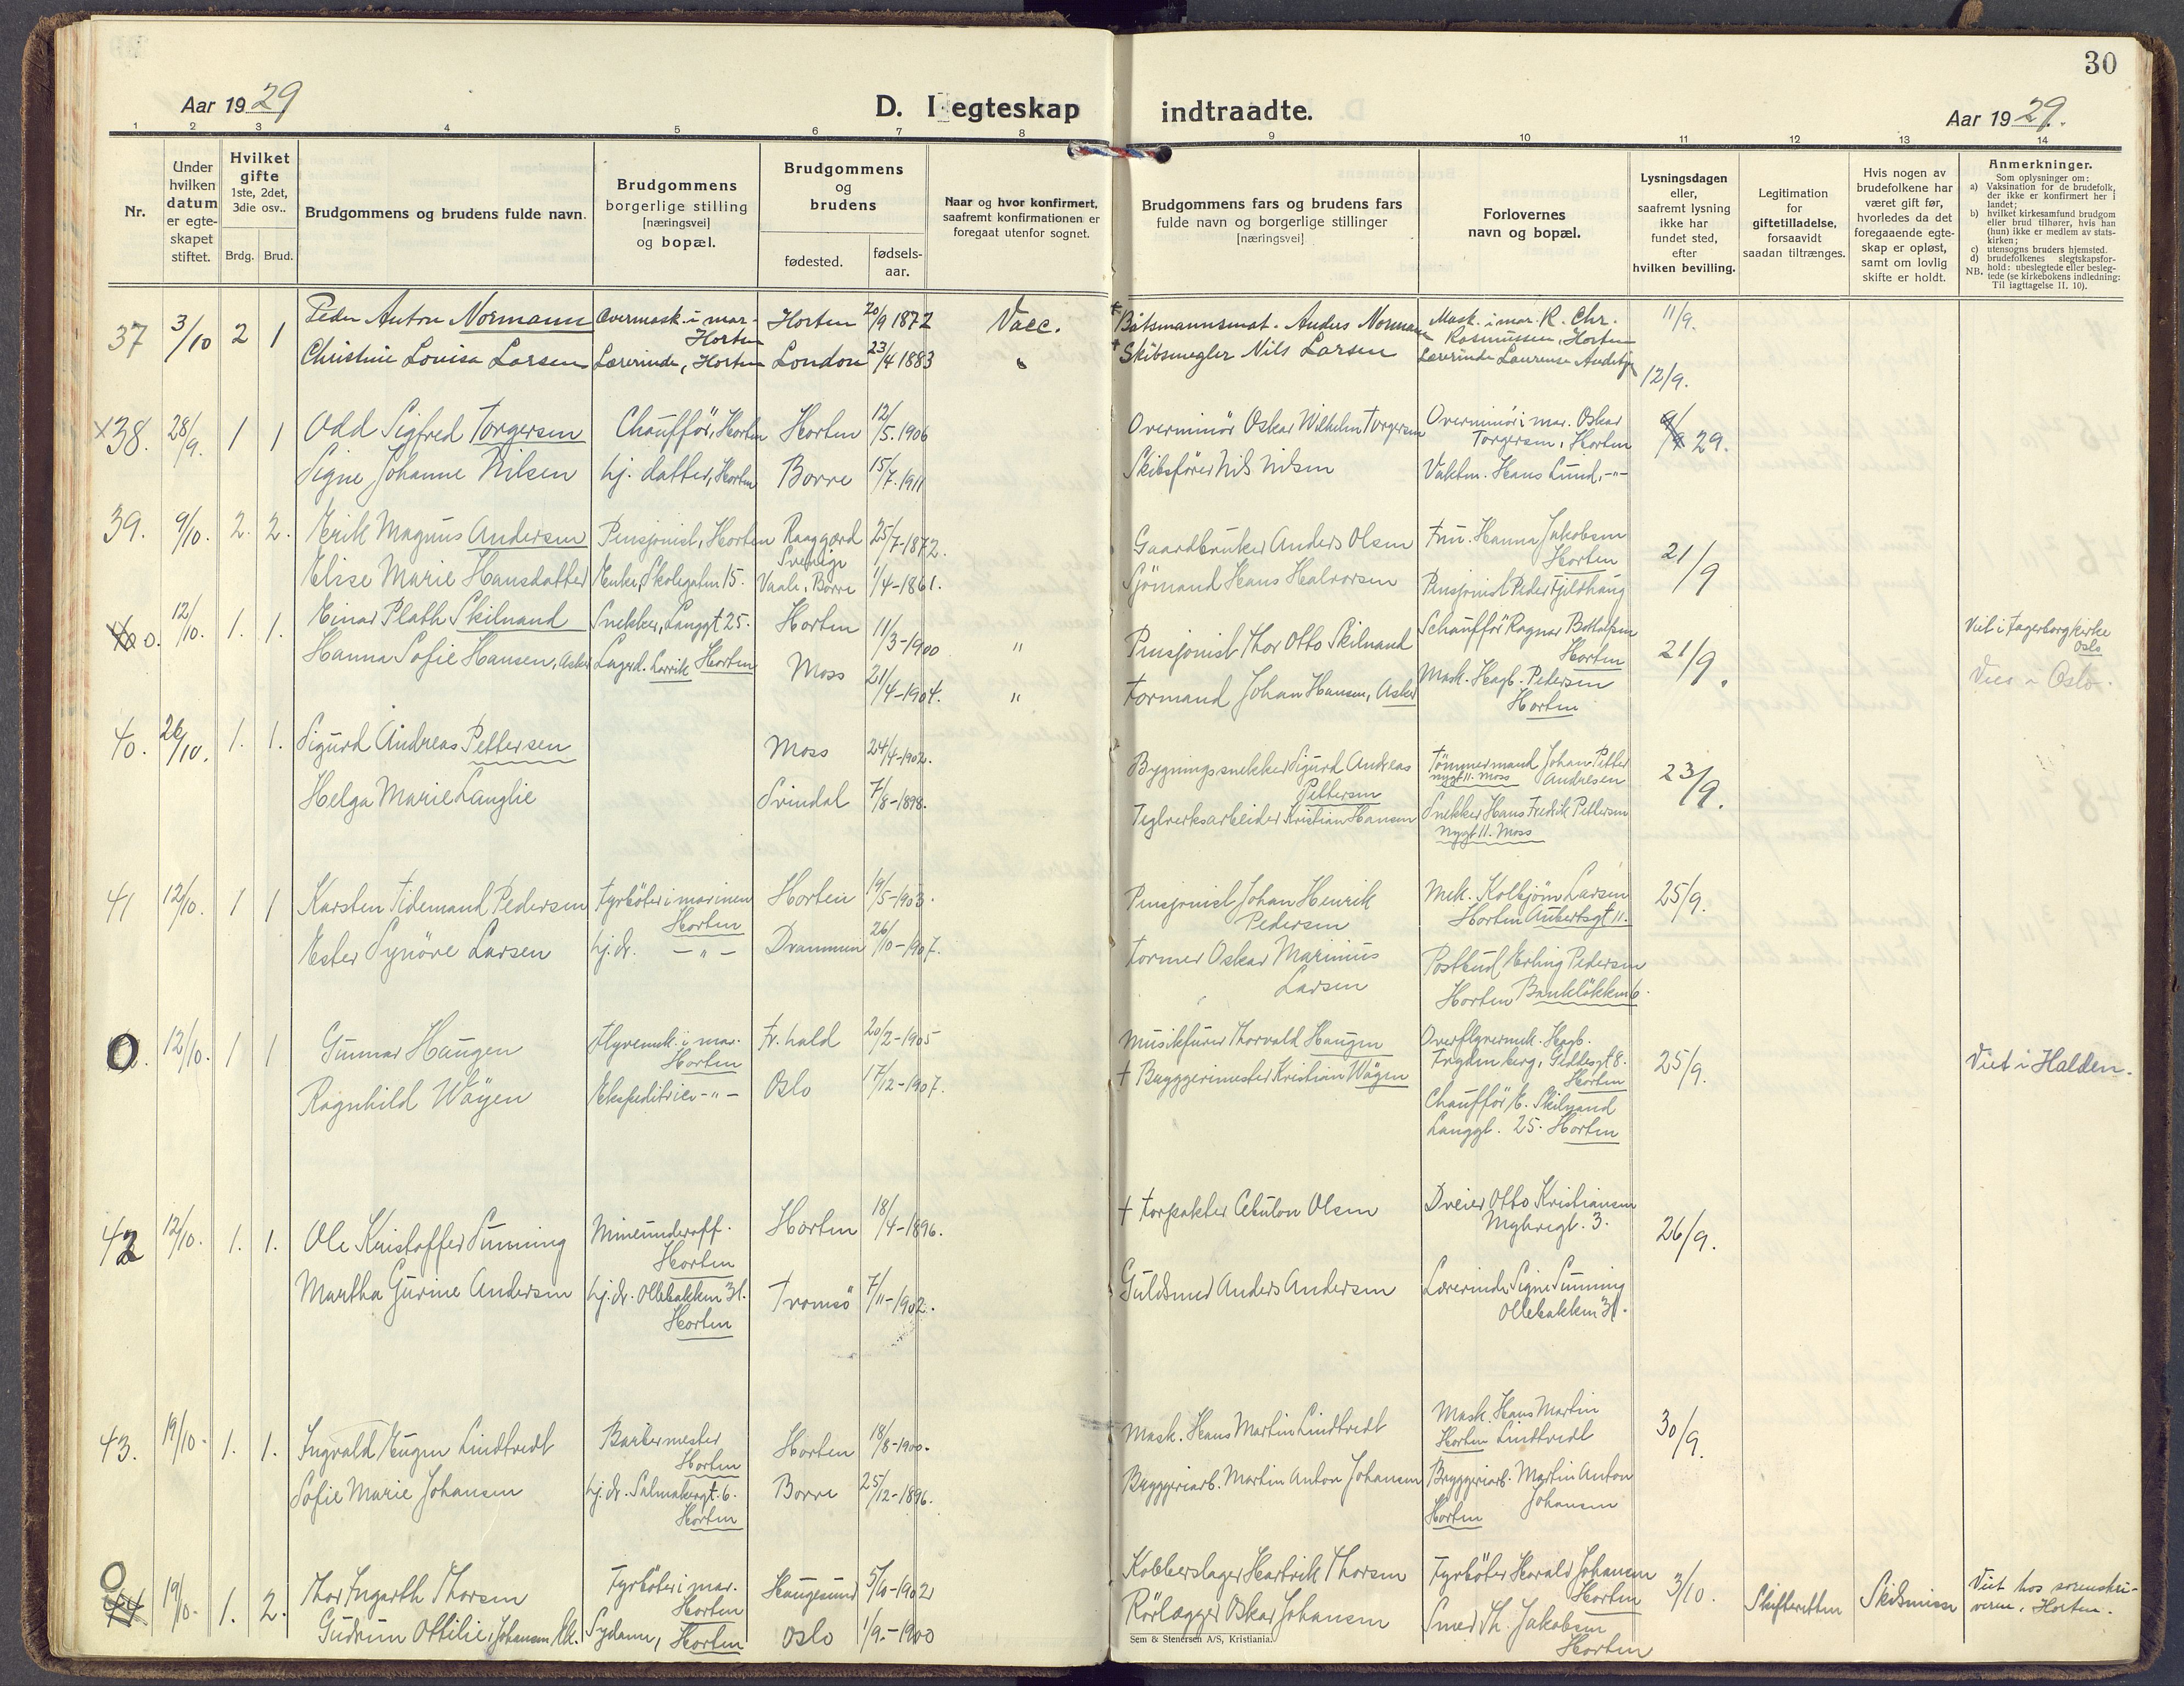 30
Aar 1929
D. I egteskap indtraadte.
Aar 1929.
1 2 3 4 5 6 7 8 9 10 11 12 13 14
Nr.
Under hvilken datum er egte-skapet stiftet.
Hvilket gifte 1ste, 2det, 3die osv..
Brdg. Brud.
Brudgommens og brudens fulde navn.
Brudgommens borgerlige stilling [næringsvei] og bopæl.
Brudgommens og brudens
fødested.
fødsels-aar.
Naar og hvor konfirmert, saafremt konfirmationen er foregaat utenfor sognet.
Brudgommens fars og brudens fars fulde navn og borgerlige stillinger [næringsvei]
Forlovernes navn og bopæl.
Lysningsdagen eller, saafremt lysning ikke har fundet sted, efter hvilken bevilling.
Legitimation for giftetilladelse, forsaavidt saadan tiltrænges.
Hvis nogen av brudefolkene har været gift før, hvorledes da det foregaaende egte-skap er opløst, samt om lovlig skifte er holdt.
Anmerkninger.
Som oplysninger om:
a) Vaksination for de brudefolk, der ikke er konfirmert her i landet;
b) hvilket kirkesamfund brudgom eller brud tilhører, hvis han (hun) ikke er medlem av stats-kirken;
c) utensogns bruders hjemsted.
d) brudefolkenes slegtskapsfor-hold: ubeslegtede eller besleg-tede (se kirkebokens indledning:
NB. Til iagttagelse II. 10).
37 3/10 2 1 Peder Anton Normann Overmask. i mar. Horten Horten 20/9 1872 Vacc. † Båtsmannsmat. Anders Normann Mask. i mar. R. Chr. Rasmussen, Horten 11/9.
Christine Louise Larsen Lærerinde, Horten London 23/4 1883 " † Skibsmegler Nils Larsen Lærerinde Laurense 12/9.
x38. 28/9. 1 1 Odd Sigfred Torgersen Chaufför, Horten Horten 12/5. 1906 Overminör Oskar Wilhelm Torgersen Overminör i mar. Oskar Torgersen, Horten 9/9 29.
Signe Johanne Nilsen hj. datter, Horten Borre 15/7. 1911 Skibsförer Nils Nilsen Vaktm. Hans Lund, -"-
39. 9/10. 2. 2. Erik Magnus Andersen Pensjonist, Horten Raaggærd Sverige 25/7-1872. Gaardbruker Anders Olsen Fru. Hanna Jakobsen Horten 21/9
Elise Marie Hansdatter Enke, Skolegaten 15. Vaale, Borre 1/4-1861. Sjömand Hans Halvorsen Pensjonist Peder Fjeldhaug
0. 12/10. 1. 1. Einar Plath Skilnand Snekker, Langgt 25. Horten 11/3-1900 " Pensjonist Thor Otto Skilnand Schaufför Ragnar Bottolfsen Horten 21/9. Viet i Fagerborg kirke Oslo
Hanna Sofie Hansen, Asker Lagerd. Larvik Horten Moss 21/4-1904. " Formand Johan Hansen, Asker Mask. Hagb. Pedersen Horten Viet i Oslo.
40. 26/10. 1. 1. Sigurd Andreas Pettersen Moss 24/4-1902. Bygningssnekker Sigurd Andreas Pettersen Tömmermand Johan Petter Andresen nygt 11. Moss 23/9.
Helga Marie Langlie Svindal 7/8-1898. Teglverksarbeider Kristian Hansen Snekker Hans Fredrik Pettersen nygt 11. Moss
41 12/10. 1 1 Karsten Tidemand Pedersen Fyrböter i marinen Horten Horten 19/5-1903. Pensjonist Johan Henrik Pedersen Mek. Kolbjörn Larsen Horten Aubertsgt 11. 25/9.
Ester Synöve Larsen hj. dr. -"- Drammen 26/10-1907. Former Oskar Marinius Larsen Postbud Erling Pedersen Horten Banklökken 6.
0. 12/10. 1 1 Gunnar Haugen Flyvemek. i mar. Horten Fr. hald 20/2-1905 Musikfurer Thorvald Haugen Overflyvermek. Hagb. Frydenberg, Geddesgt 8. Horten 25/9. Viet i Halden.
Ragnhild Wøyen Ekspeditrice -"- Oslo 17/12-1907. † Bryggerimester Kristian Wøyen Chaufför E. Skilnand Langgt. 25. Horten
42 12/10. 1. 1. Ole Kristoffer Sunning Mineunderoff. Horten Horten 18/4-1896. † Forpakter Cebulon Olsen Dreier Otto Kristiansen Myhregt. 3. 26/9.
Martha Gurine Andersen hj. dr. Ollebakken 31. Horten Tromsö 7/11-1902. Guldsmed Anders Andersen Lærerinde Signe Sunning Ollebakken 31.
43. 19/10. 1. 1. Ingvald Eugen Lindtvedt Barbermester Horten Horten 18/8-1900. Mask. Hans Martin Lindtvedt Mask. Hans Martin Lindtvedt Horten 30/9.
Sofie Marie Johansen hj. dr. Salmakergt. 6. Horten Borre 25/12-1896. Bryggeriarb. Martin Anton Johansen Bryggeriarb. Martin Anton Johansen Horten
0 44 19/10. 1. 2. Thor Ingarth Thorsen Fyrböter i mar. Horten Haugesund 5/10-1902 Kobberslager Hartvik Thorsen Fyrböter Harald Johansen Horten 3/10. Skifteretten Skilsmisse Viet hos sorenskri-veren i Horten.
Gudrun Ottilie Johansen Sydame, Horten Oslo 1/9-1900 Rörlægger Oskar Johansen Smed Th. Jakobsen Horten
Sem & Stenersen A/S, Kristiania.